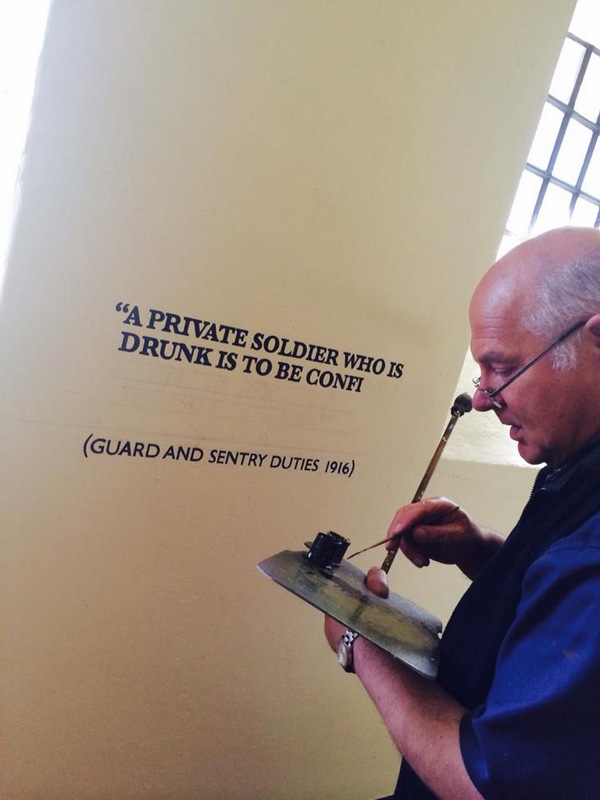 “A PRIVATE SOLDIER WHO IS
DRUNK IS TO BE CONFI
(GUARD AND SENTRY DUTIES 1916)